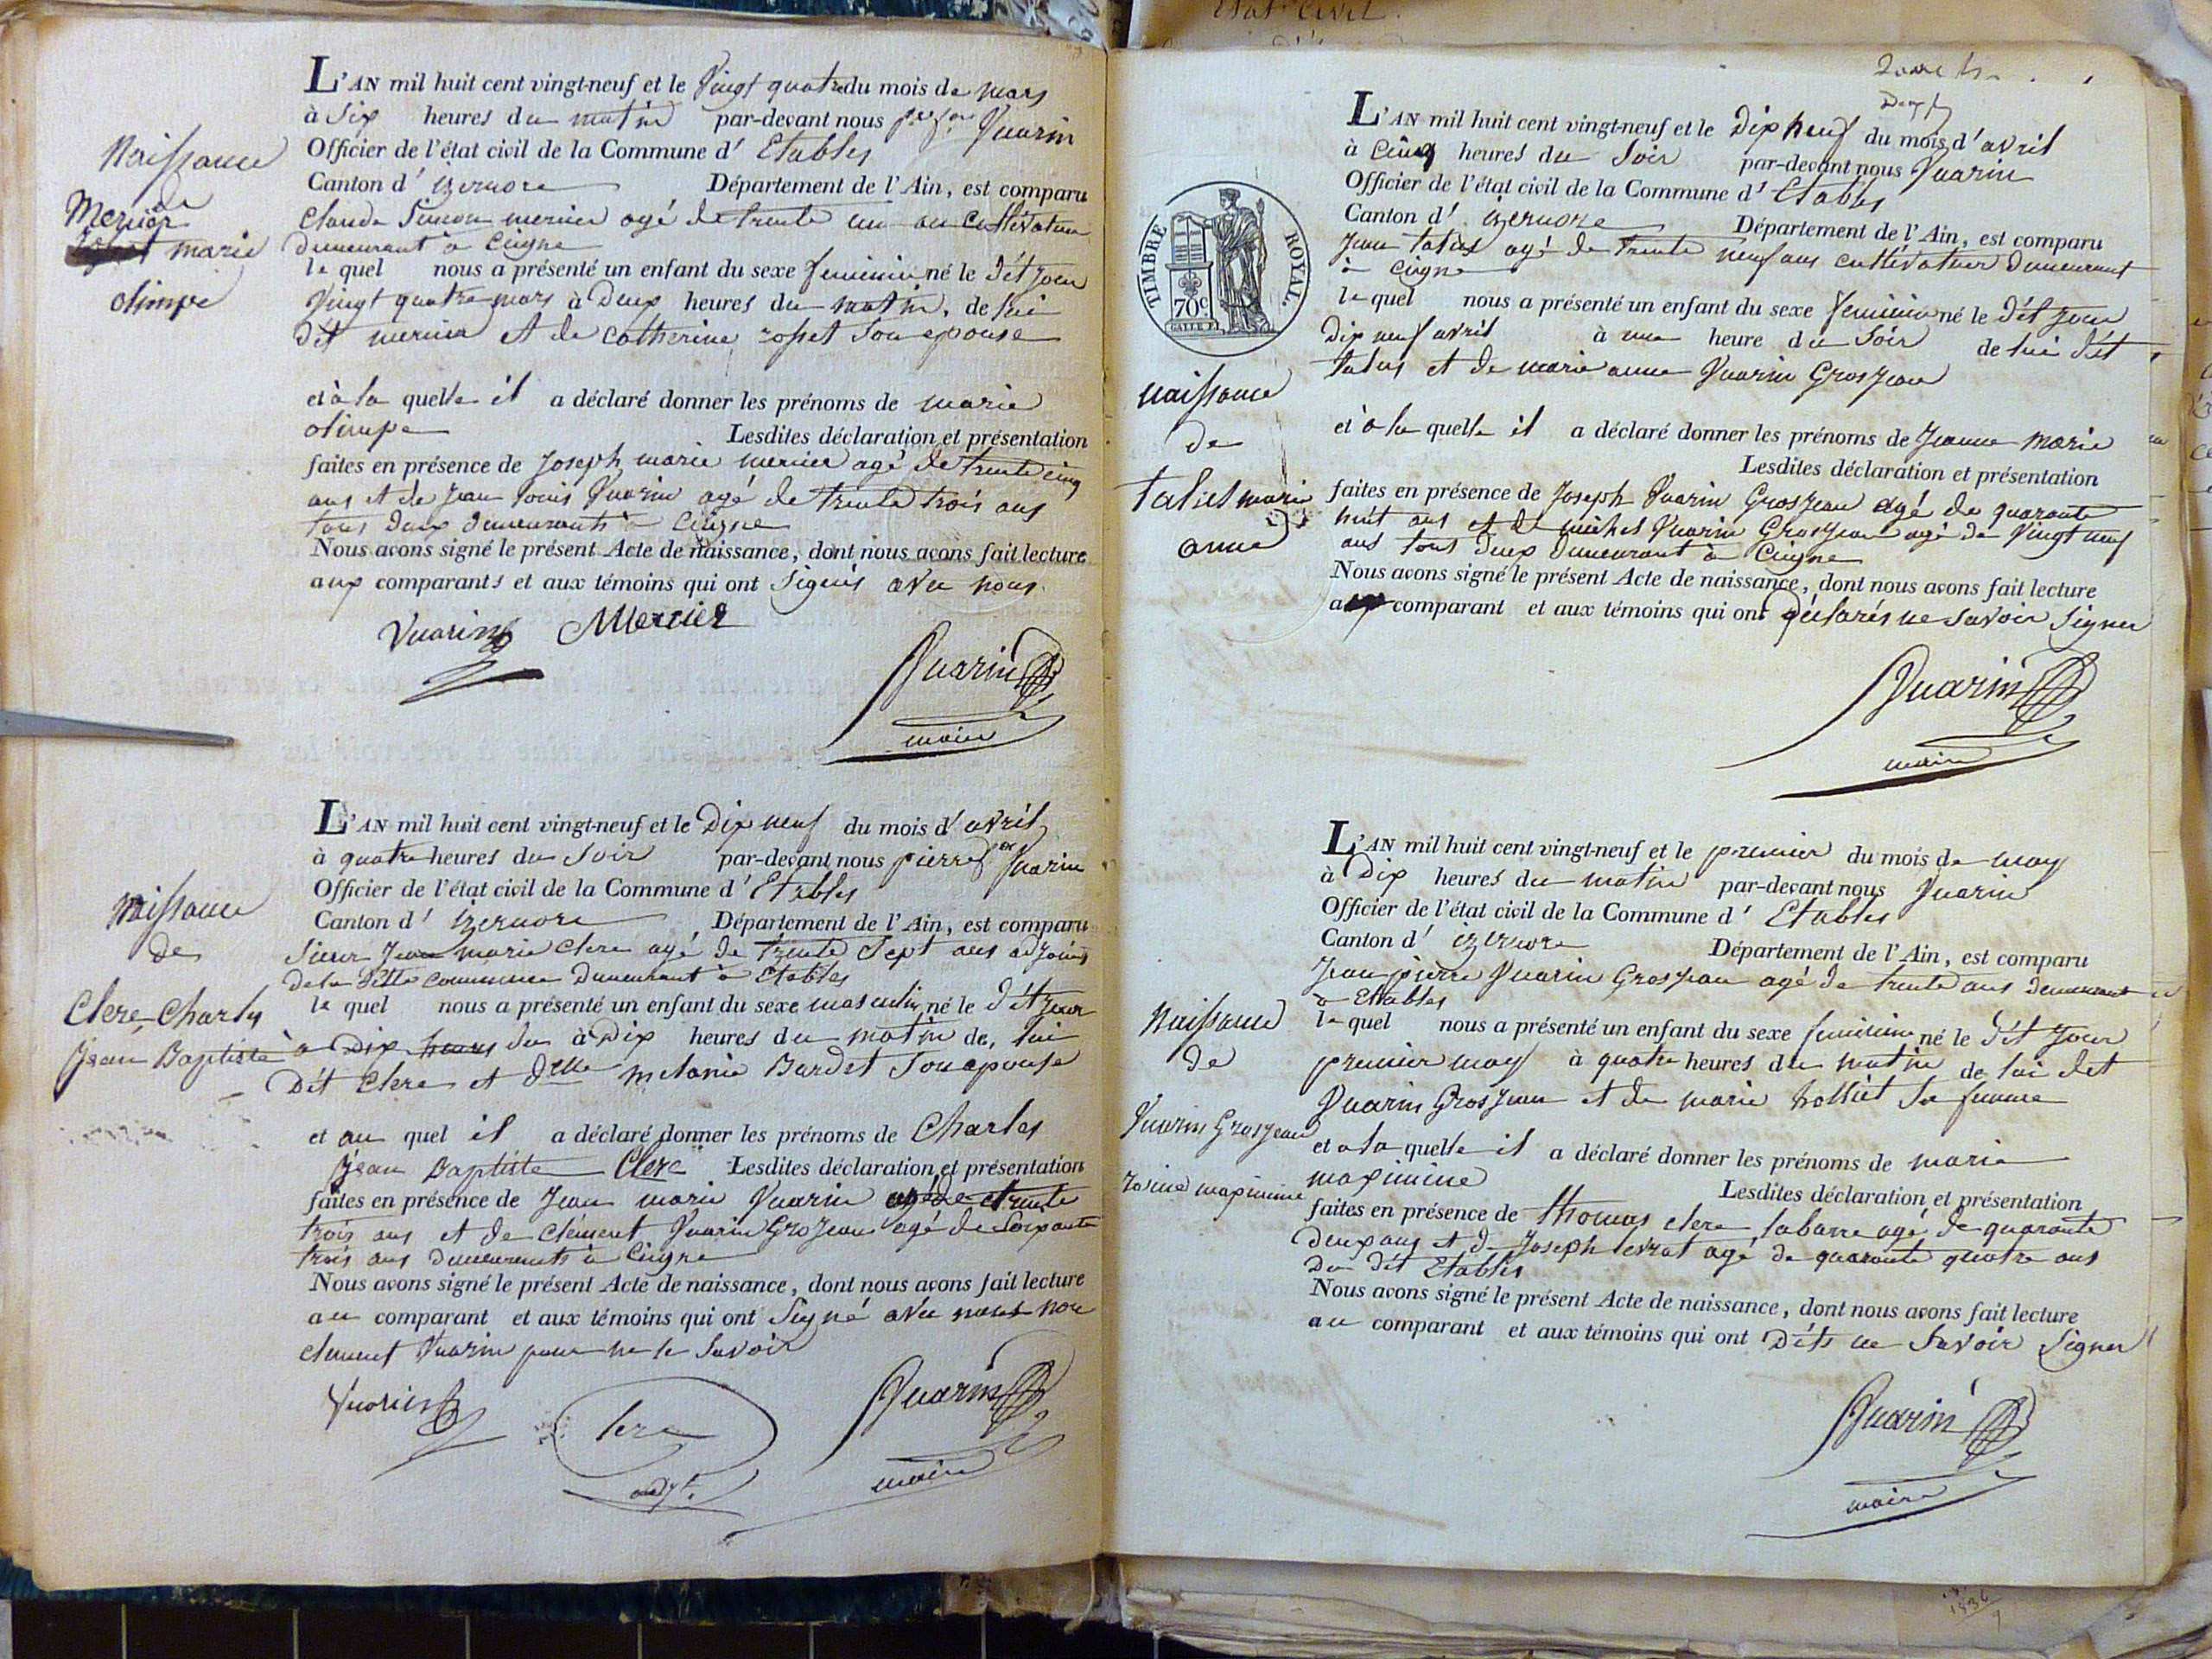 Naissance
de
Mercier
marie
olimpe
L'AN mil huit cent vingt-neuf et le Vingt quatre du mois de mars
à Six heures du matin par-devant nous Vuarin
Officier de l'état civil de la Commune d' Etables
Canton d' izernore Département de l'Ain, est comparu
Claude Simon mercier agé de trente un an cultivateur
demeurant à Ceigne
le quel nous a présenté un enfant du sexe feminin né le dét jour
Vingt quatre mars à Deux heures du matin, de lui
Dét mercier et de catherine rosset son epouse
et à la quelle il a déclaré donner les prénoms de marie
olimpe Lesdites déclaration et présentation
faites en présence de Joseph marie mercier agé de trente cinq
ans et de Jean louis Vuarin agé de trente trois ans
tous deux demeurants à Ceigne
Nous avons signé le présent Acte de naissance, dont nous avons fait lecture
aux comparants et aux témoins qui ont Signés avec nous.
Vuarin Mercier
Vuarin
maire
Naissance
de
Clerc Charles
Jean Baptiste
L'AN mil huit cent vingt-neuf et le Dix neuf du mois d'avril
à quatre heures du Soir par-devant nous pierre Vuarin
Officier de l'état civil de la Commune d' Etables
Canton d' izernore Département de l'Ain, est comparu
Sieur Jean marie Clerc agé de trente Sept ans adjoint
de la ditte commune demeurant à Etables
le quel nous a présenté un enfant du sexe masculin né le dét jour
à Dix heures du à Dix heures du matin de, lui
Dét Clerc et delle melanie Bardet Son epouse
et au quel il a déclaré donner les prénoms de Charles
Jean Baptiste Clerc Lesdites déclaration et présentation
faites en présence de Jean marie Vuarin agé de trente
trois ans et de Clément Vuarin GroJean agé de Soixante
trois ans demeurents à Ceigne
Nous avons signé le présent Acte de naissance, dont nous avons fait lecture
au comparant et aux témoins qui ont Signé avec nous non
clement Vuarin pour ne le Savoir
Vuarin
Clerc
adjt.
Vuarin
maire
Etat Civil.
TIMBRE ROYAL.
70c
Naissance
de
Talut marie
anne
L'AN mil huit cent vingt-neuf et le Dix neuf du mois d'avril
à Cinq heures du Soir par-devant nous Vuarin
Officier de l'état civil de la Commune d' Etables
Canton d' izernore Département de l'Ain, est comparu
Jean talut agé de trente neuf ans cultivateur demeurant
à Ceigne
le quel nous a présenté un enfant du sexe feminin né le dét jour
Dix neuf avril à une heure du Soir de lui dét
talut et de marie anne Vuarin GrosJean
et à la quelle il a déclaré donner les prénoms de Jeanne marie
Lesdites déclaration et présentation
faites en présence de Joseph Vuarin GrosJean agé de quarante
huit ans et de michel Vuarin GrosJean agé de Vingt neuf
ans tous deux demeurant à Ceigne
Nous avons signé le présent Acte de naissance, dont nous avons fait lecture
au comparant et aux témoins qui ont déclarés ne savoir Signer
Vuarin
maire
Naissance
de
Vuarin GrosJean
marie maximine
L'AN mil huit cent vingt-neuf et le premier du mois de may
à Dix heures du matin par-devant nous Vuarin
Officier de l'état civil de la Commune d' Etables
Canton d' izernore Département de l'Ain, est comparu
Jean pierre Vuarin GrosJean agé de trente ans demeurant
à Etables
le quel nous a présenté un enfant du sexe feminin né le dét jour
premier may à quatre heures du matin de lui det
Vuarin GrosJean et de marie trolliet Sa femme
et à la quelle il a déclaré donner les prénoms de marie
maximine Lesdites déclaration et présentation
faites en présence de thomas clerc labarre agé de quarante
deux ans et de Joseph levrat agé de quarante quatre ans
Du dét Etables
Nous avons signé le présent Acte de naissance, dont nous avons fait lecture
au comparant et aux témoins qui ont Déts ne Savoir Signer
Vuarin
maire
1836